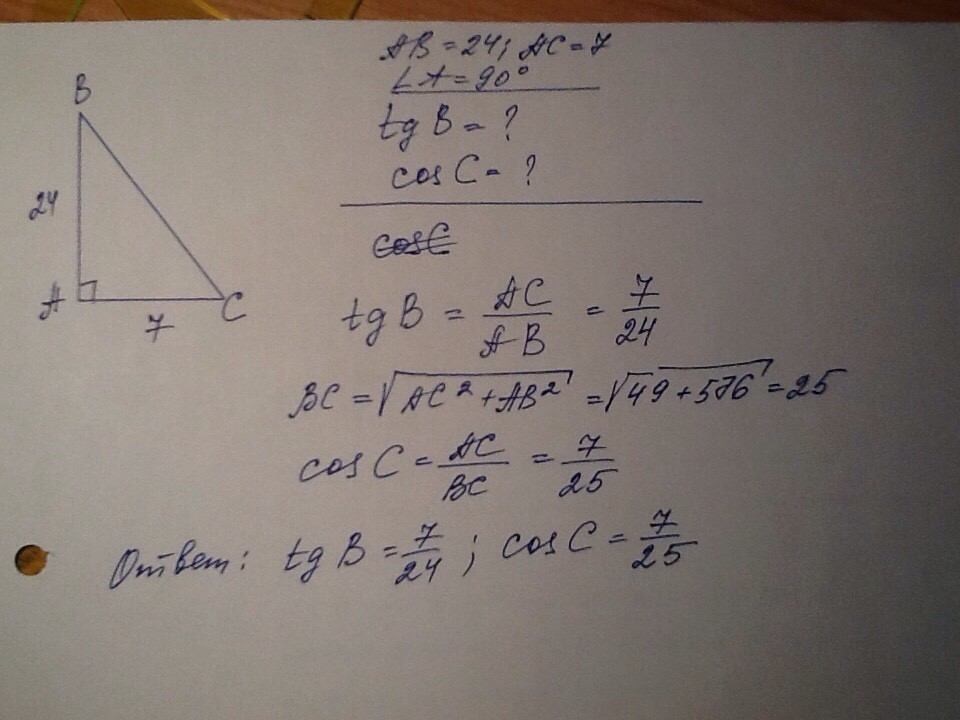 AB = 24; AC = 7
∠A = 90°
tg B = ?
cos C = ?
B
24
A
7
C
cosC
tg B = AC/AB = 7/24
BC = √(AC² + AB²) = √(49 + 576) = 25
cos C = AC/BC = 7/25
Ответ: tg B = 7/24; cos C = 7/25